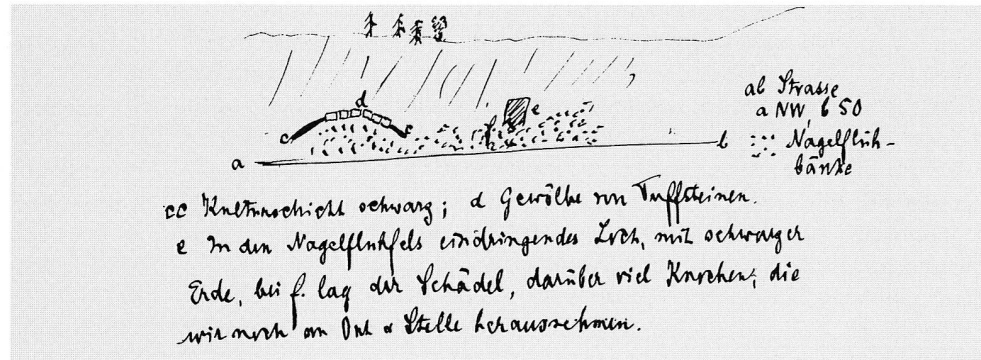 d
e
c c
f
ab Strasse
a NW, b SO
a b Nagelfluh-
bänke
cc Kulturschicht schwarz; d Gewölbe von Tuffsteinen.
e In den Nagelfluhfels eindringendes Loch, mit schwarzer
Erde, bei f. lag der Schädel, darüber viel Knochen, die
wir noch an Ort & Stelle herausnehmen.